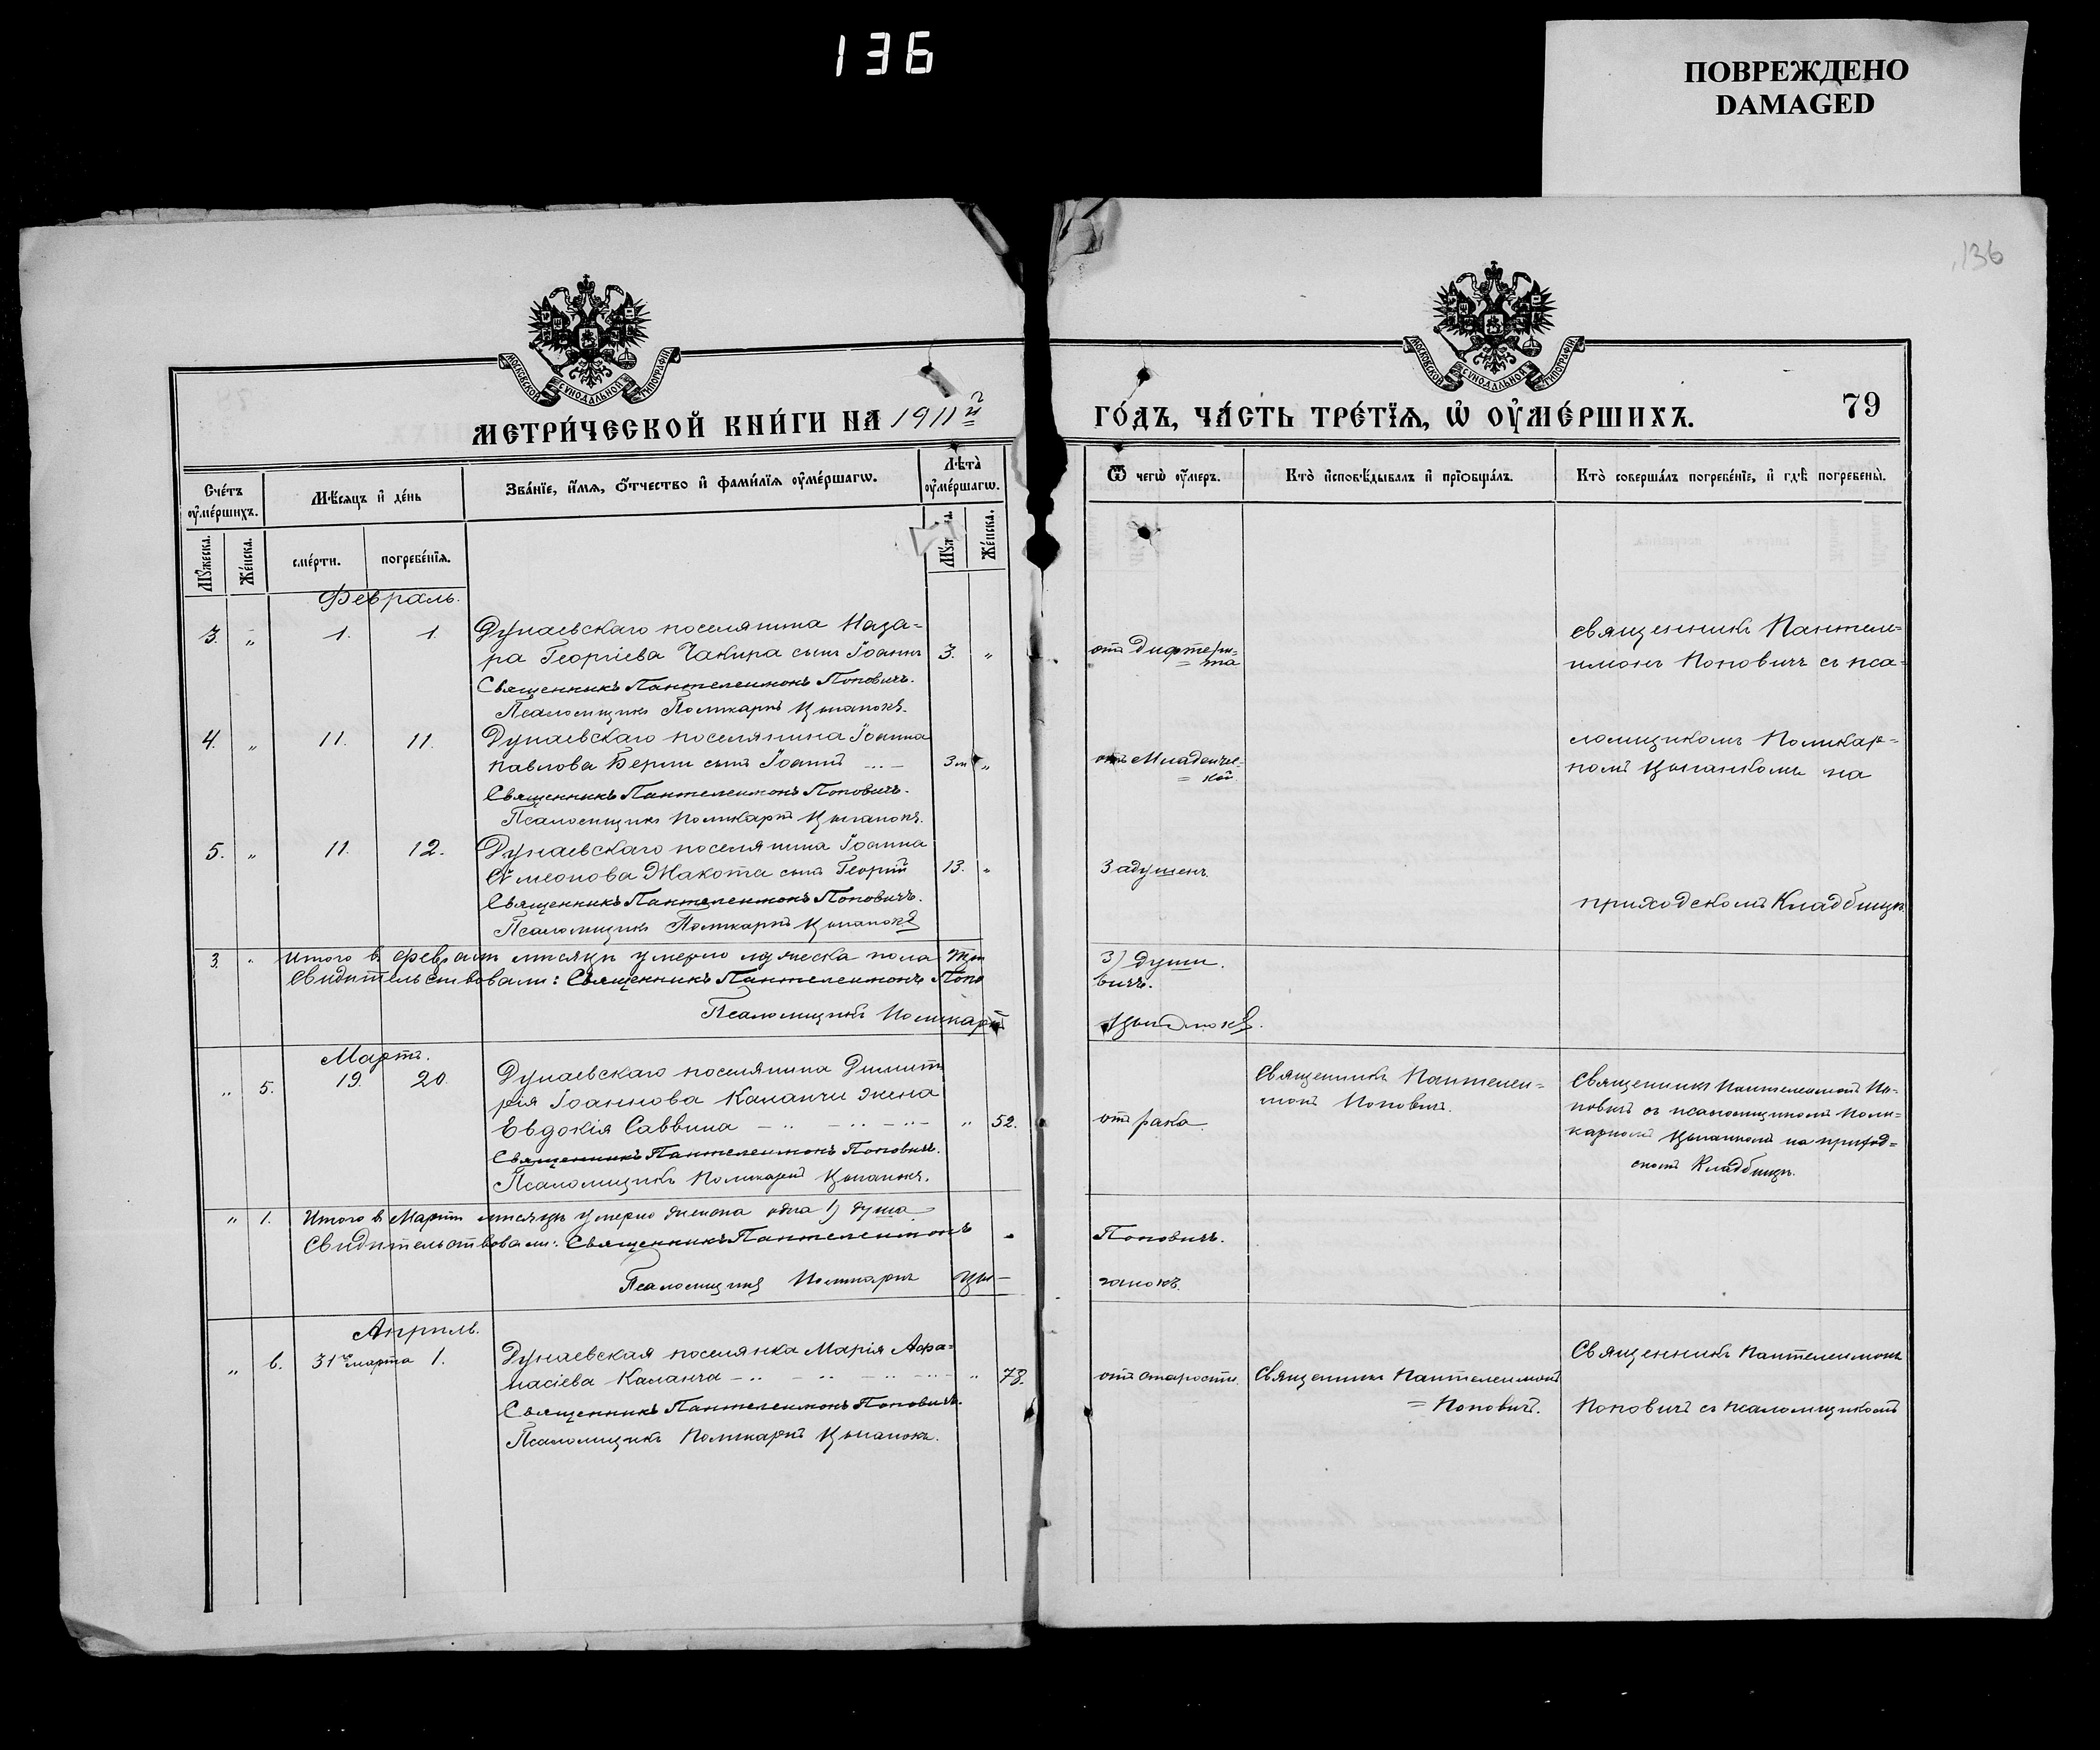 136
ПОВРЕЖДЕНО
DAMAGED
136
МОСКОВСКОЙ СѴНОДАЛЬНОЙ ТИПОГРАФІИ
МОСКОВСКОЙ СѴНОДАЛЬНОЙ ТИПОГРАФІИ
МЕТРИ́ЧЕСКОЙ КНИ́ГИ НА 1911й
ГО́ДЪ, ЧА́СТЬ ТРЕ́ТЇѦ, Ѡ҆ ОУ҆МЕ́РШИХЪ.
79
Сче́тъ оу҆ме́ршихъ.
Мѣ́сѧцъ и҆ де́нь
Зва́нїе, и҆́мѧ, ѻ҆́тчество и҆ фами́лїѧ оу҆ме́ршагѡ.
Лѣ́та оу҆ме́ршагѡ.
Ѿ чегѡ̀ оу҆́меръ.
Кто̀ и҆сповѣ́дывалъ и҆ прїѻбща́лъ.
Кто̀ соверша́лъ погребе́нїе, и҆ гдѣ̀ погребены̀.
Мꙋ́жеска.
Же́нска.
сме́рти.
погребе́нїѧ.
Же́нска.
Февраль.
3. „ 1. 1. Дунаевскаго поселянина Наза-
ра Георгіева Чакира сынъ Іоаннъ 3. „
Священникъ Пантелеимонъ Поповичъ.
Псаломщикъ Поликарпъ Цыганокъ.
отъ Дифтери-
= та
священникъ Пантеле-
имонъ Поповичъ съ пса-
4. „ 11. 11. Дунаевскаго поселянина Іоанна
Павлова сынъ Іоаннъ 3 м „
Священникъ Пантелеимонъ Поповичъ.
Псаломщикъ Поликарпъ Цыганокъ.
отъ Младенчес-
= кой
ломщикомъ Поликар-
помъ Цыганкомъ на
5. „ 11. 12. Дунаевскаго поселянина Іоанна
Сѵмеонова Жакота сынъ Георгій 13. „
Священникъ Пантелеимонъ Поповичъ.
Псаломщикъ Поликарпъ Цыганокъ
Задушенъ
приходскомъ Кладбищѣ.
3. „ Итого въ Февралѣ мѣсяцѣ умерло мужеска пола три 3) души.
Свидѣтельствовали: Священникъ Пантелеимонъ Попо вичъ.
Псаломщикъ Поликарпъ Цыганокъ.
Мартъ.
„ 5. 19. 20. Дунаевскаго поселянина Димит
рія Іоаннова Каланчи жена
Евдокія Саввина „ 52.
Священникъ Пантелеимонъ Поповичъ.
Псаломщикъ Поликарпъ Цыганокъ.
отъ рака.
Священникъ Пантелеи-
монъ Поповичъ.
Священникъ Пантелеимонъ По-
повичъ съ псаломщикомъ Поли-
карпомъ Цыганкомъ на приход-
скомъ Кладбищѣ.
„ 1. Итого въ Мартѣ мѣсяцѣ умерло женска одна 1) душа
Свидѣтельствовали: Священникъ Пантелеимонъ Поповичъ.
Псаломщикъ Поликарпъ Цы- ганокъ.
Апрѣль.
„ 6. 31го марта 1. Дунаевская поселянка Марія Афа-
насіева Каланча „ 78.
Священникъ Пантелеимонъ Поповичъ.
Псаломщикъ Поликарпъ Цыганокъ.
отъ старости.
Священникъ Пантелеимонъ
= Поповичъ.
Священникъ Пантелеимонъ
Поповичъ съ псаломщикомъ